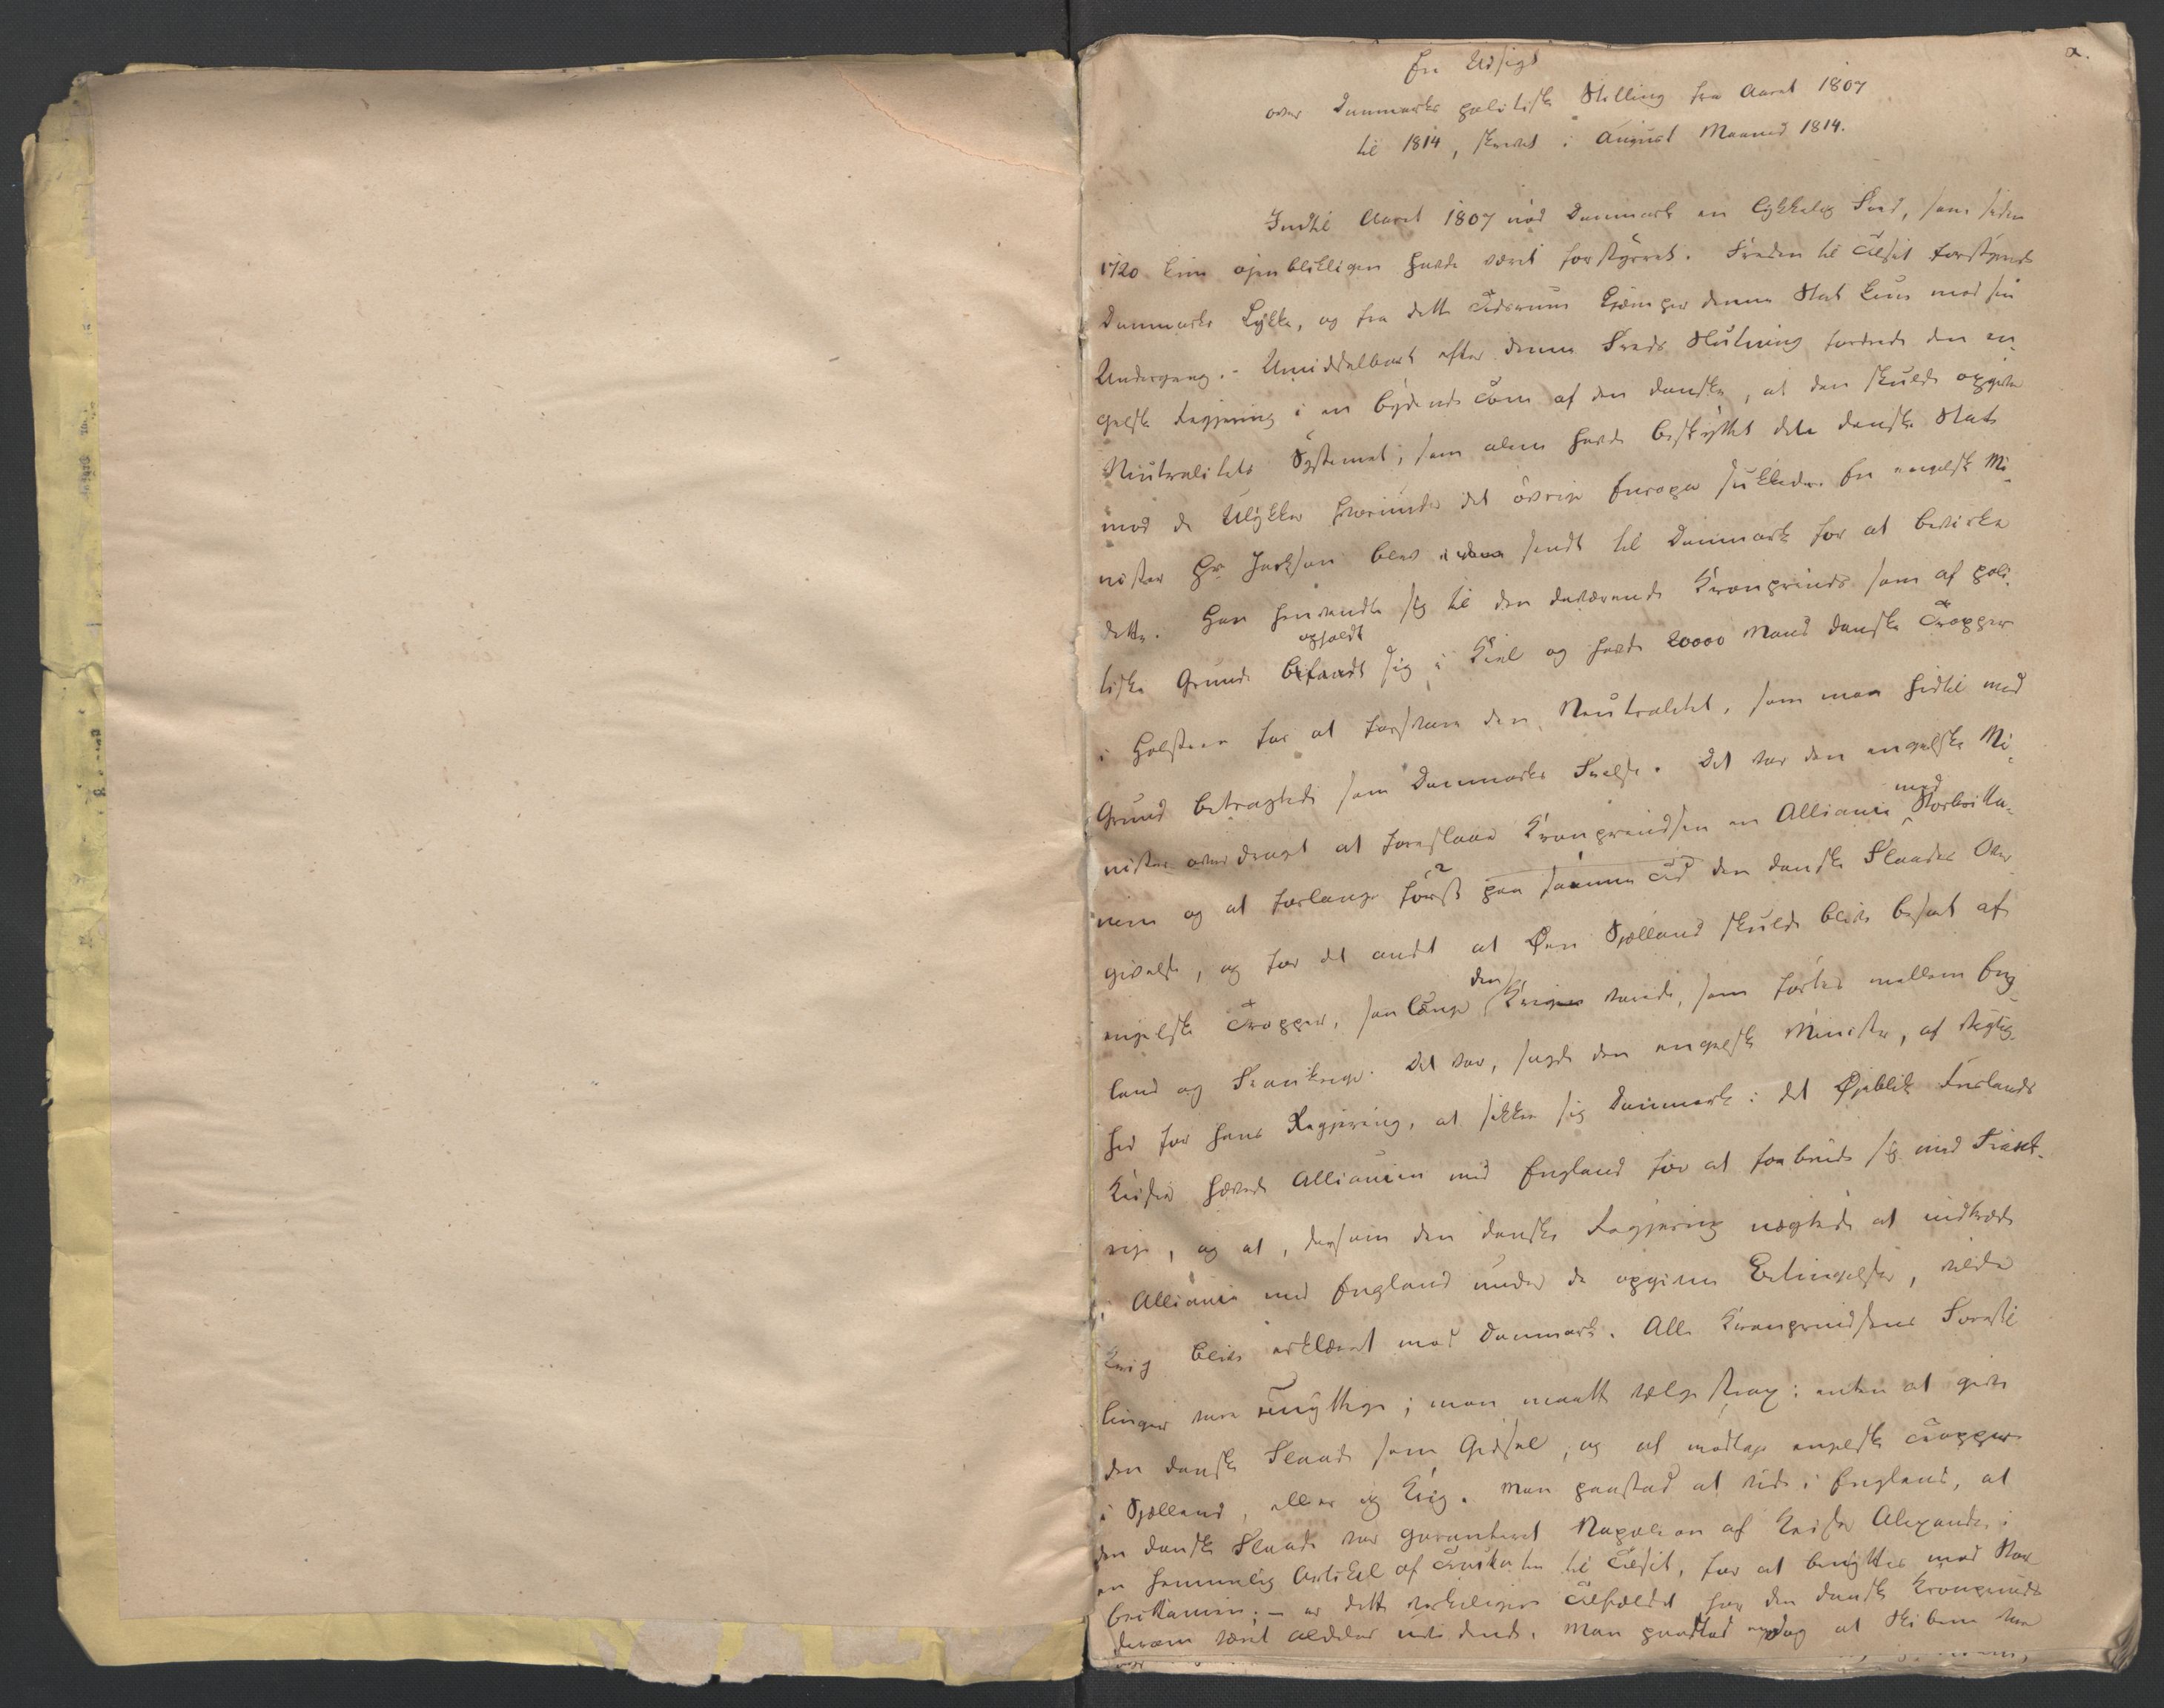 a.
En Udsigt
over Danmarks politiske Stilling fra Aaret 1807
til 1814, skrevet i August Maaned 1814.
Indtil Aaret 1807 nød Danmark en lykkelig Fred, som siden
1720 kun øjenblikligen havde været forstyrret. Freden til Tilsit forstyrrede
Danmarks Lykke, og fra dette Tidsrum kjæmper denne Stat kun mod sin
Undergang. - Umiddelbart efter denne Freds Slutning fordrede den en-
gelske Regjering i en bydende Tone af den danske, at den skulde opgive
Neutralitets Systemet, som alene havde beskyttet dela danske Stat
mod de Ulykker hvorunder det øvrige Europa sukkede. En engelsk Mi-
nister Hr Jackson blev sendt til Danmark for at bevirke
dette. Han henvendte sig til den daværende Kronprinds som af poli-
tiske Grunde befandt opholdt sig i Kiel og havde 20000 Mand danske Tropper
i Holsteen for at forsvare den Neutralitet, som man hidtil med
Grund betragtede som Danmarks Frelse. Det var den engelske Mi-
nister overdraget at foreslaae Kronprindsen en Alliance med Storbritta-
nien og at forlange først paa samme Tid den danske Flaades Over-
givelse, og for det andet at Øen Sjælland skulde blive besat af
engelske Tropper, saa længe den Krigen varede, som førtes mellem Eng-
land og Frankrige. Det var, sagde den engelske Minister, af Vigtig-
hed for hans Regjering, at sikkre sig Danmark i det Øjeblik Ruslands
Keiser hævede Alliancen med England for at forbinde sig med Frank-
rige, og at, dersom den danske Regjering nægtede at indtræde
i Alliance med England under de opgivne Betingelser, vilde
Krig blive erklæret mod Danmark. Alle Kronprindsens Forestil
linger vare unyttige; man maatte vælge strax: enten at give
den danske Flaade som Gidsel, og at modtage engelske Tropper
i Sjælland, eller og Krig. Man paastod at vide i England, at
den danske Flaade var garanteret Napoleon af Keiser Alexander i
en hemmelig Artikel af Traktaten til Tilsit, for at benyttes mod Stor-
britanien; - er dette virkeligen Tilfældet har den danske Kronprinds
derom været aldeles uvidende. Man paastod endog at Skibene vare